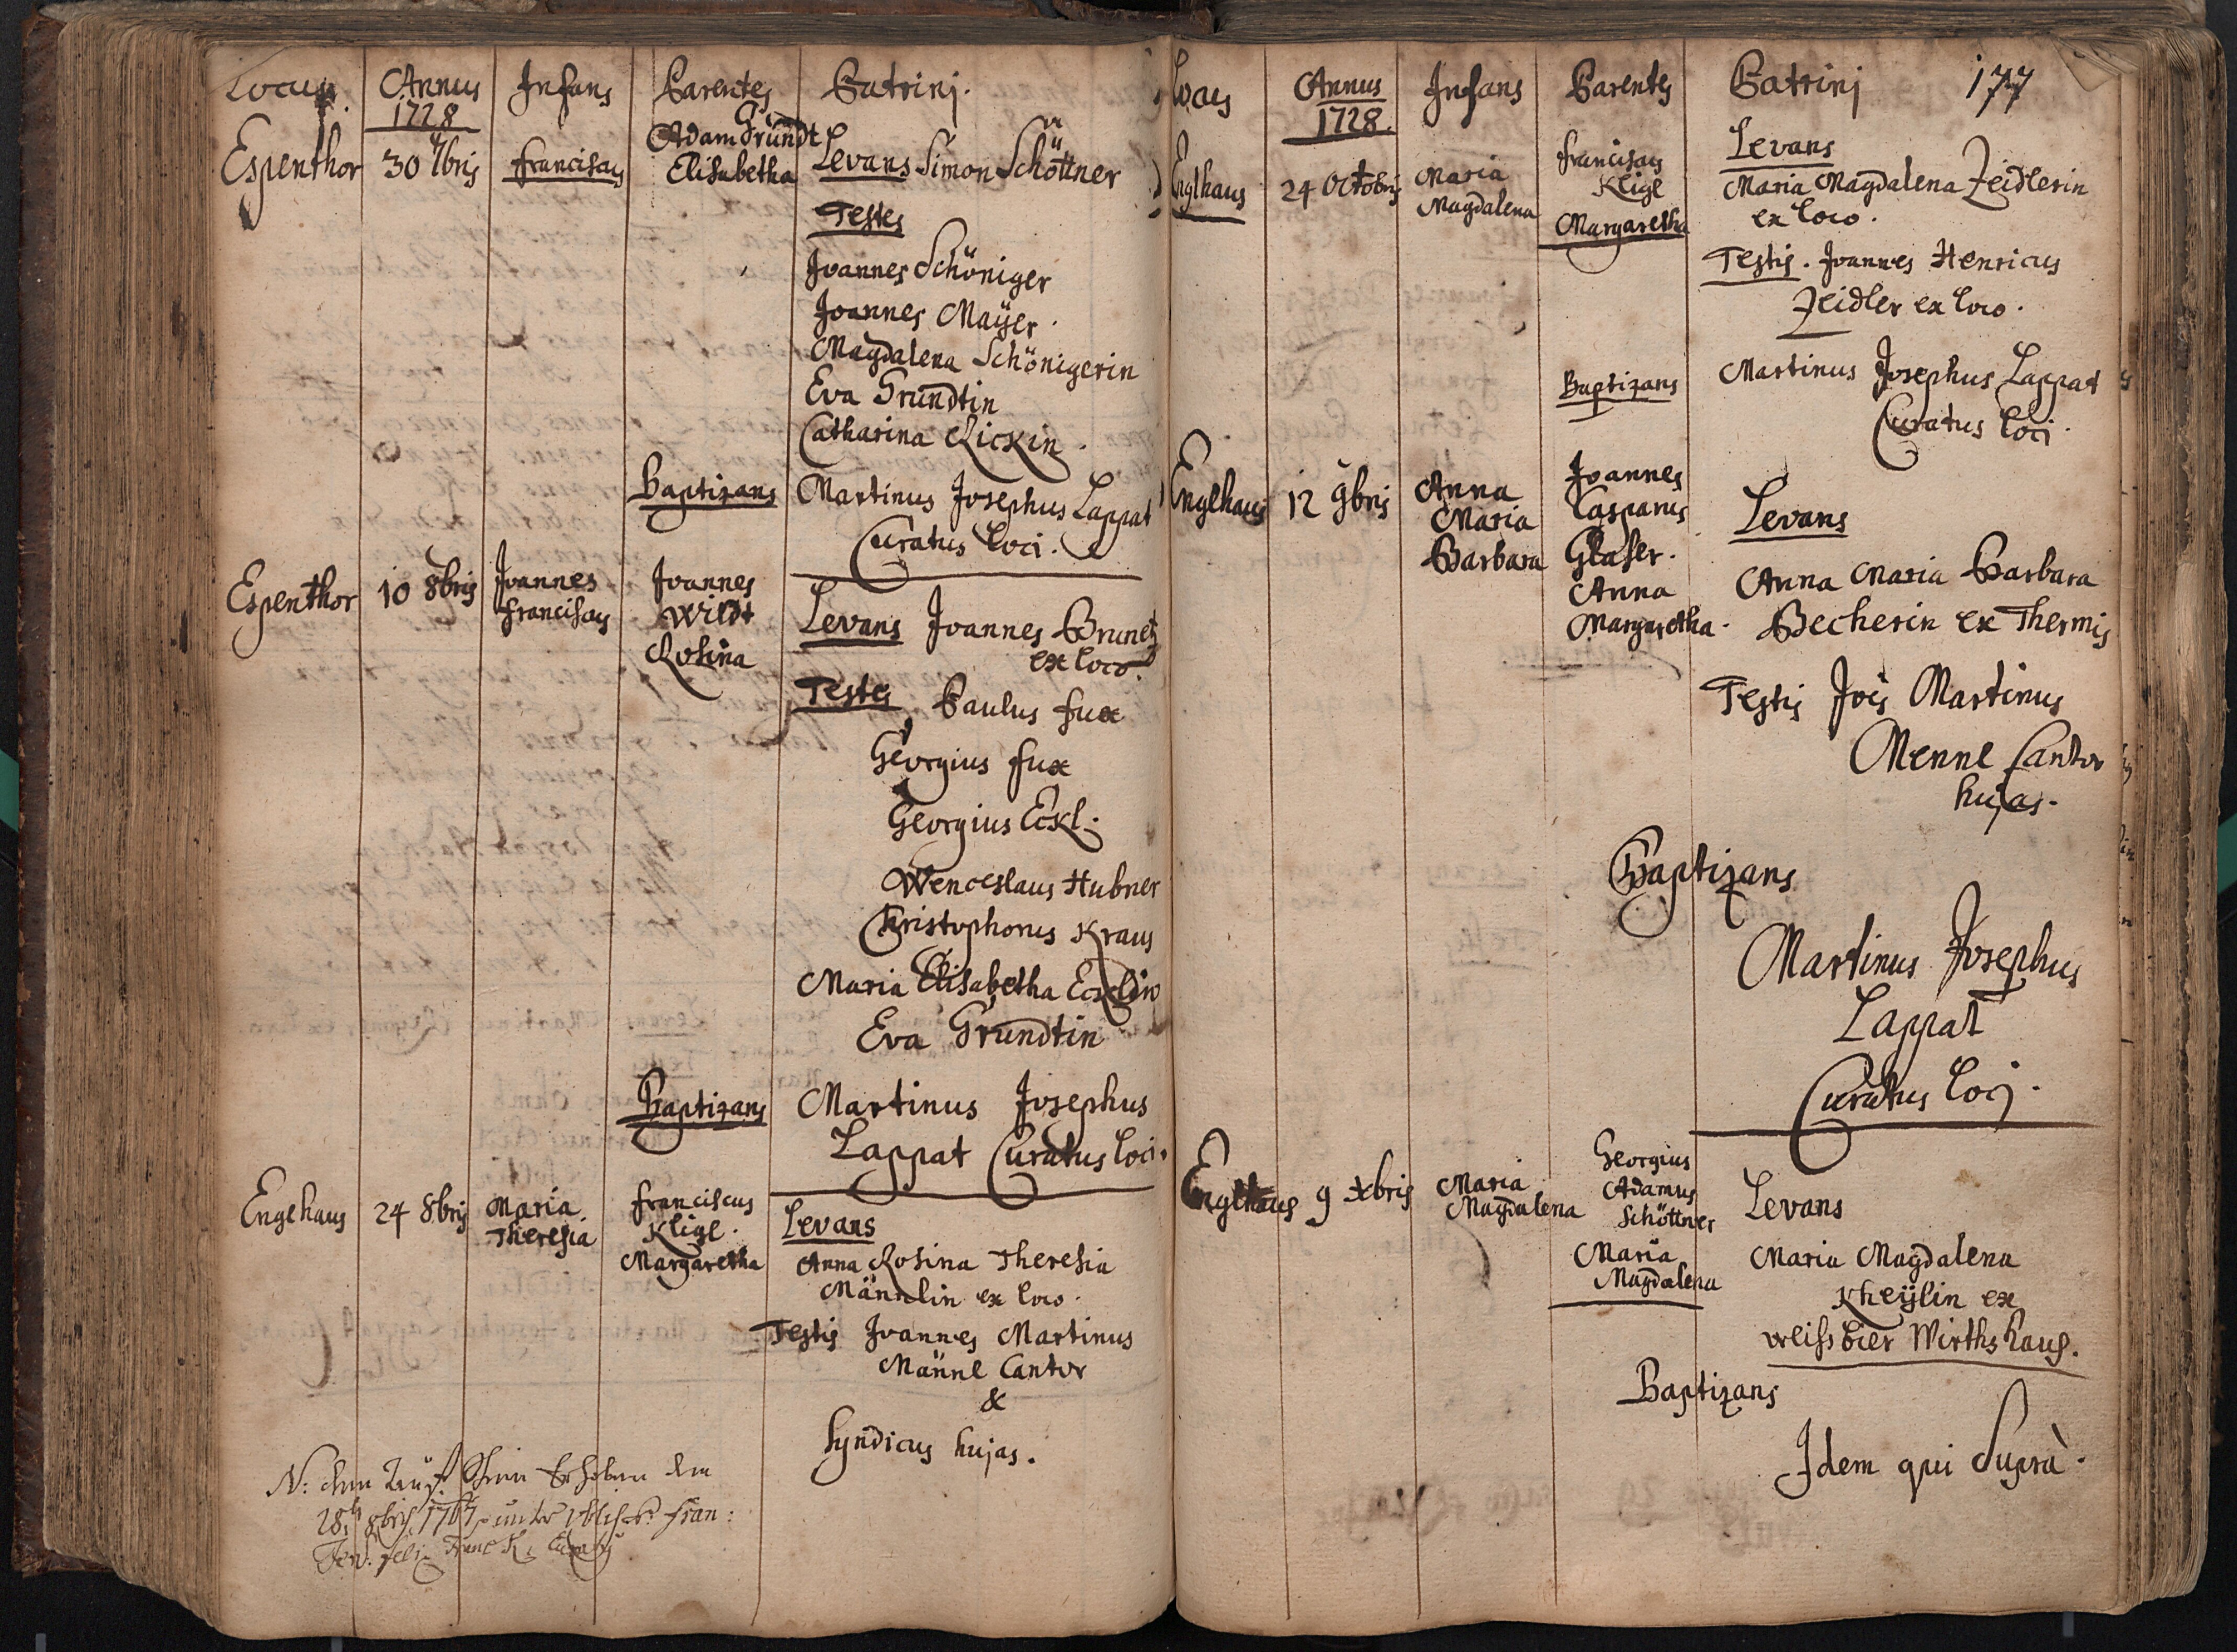 Locus Annus Infans Parentes Patrinj.
1728
Espenthor 30 7bris Franciscus Adam Gründt Levans Simon Schöttner
Elisabetha
Testes
Joannes Schöniger
Joannes Maÿer.
Magdalena Schönigerin
Eva Gründtin
Catharina Rickin.
Baptizans Martinus Josephus Lappat
Curatus Loci.
Espenthor 10 8bris Joannes Joannes Levans Joannes Brunetz
Franciscus Wildt ex loco.
Rosina
Testes Paulus Fux
Georgius Fux
Georgius Eckl.
Wenceslaus Hubner
Christophorus Kraus
Maria Elisabetha
Eva Gründtin
Baptizans Martinus Josephus
Lappat Curatus Loci.
Englhaus 24 8bris Maria Franciscus Levans
Theresia Kligl.
Margaretha Anna Rosina Theresia
Männlin ex loco.
Testis Joannes Martinus
Männl Cantor
&
Syndicus hujas.
N: den Tauf Schein Erhoben den
Locus Annus Infans Parentes Patrinj 177
1728.
Englhaus 24 Octobris Maria Franciscus Levans
Magdalena Kligl Maria Magdalena Zeidlerin
Margaretha ex loco.
Testis. Joannes Henricus
Zeidler ex loco.
Baptizans Martinus Josephus Lappat
Curatus Loci.
Englhaus 12 9bris Anna Joannes Levans
Maria Casparus
Barbara Glaser. Anna Maria Barbara
Anna
Margaretha. Becherin ex Thermis
Testis Jois Martinus
Mennl Cantor
hujas.
Baptizans
Martinus Josephus
Lappat
Curatus Locj.
Englhaus 9 Xbris Maria Georgius Levans
Magdalena Adamus
Schöttner
Maria Maria Magdalena
Magdalena Kheÿlin ex
weissbier Wirthshaus.
Baptizans
Idem qui Suprà.